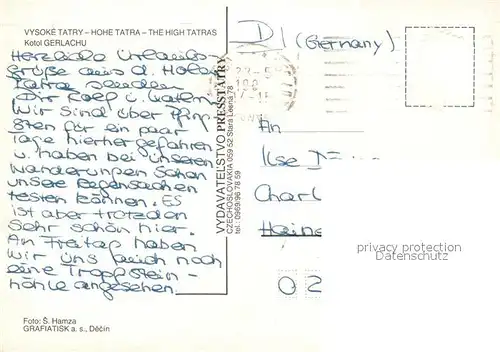 VYSOKÉ TATRY – HOHE TATRA – THE HIGH TATRAS
Kotol GERLACHU
Herzliche Urlaubs-
grüße aus d. Hohen
Tatra senden
Dir Rolf u.
Wir sind über Pfing-
sten für ein paar
Tage hierhergefahren
u. haben bei unseren
Wanderungen schon
unsere Regensachen
testen können. Es
ist aber trotzdem
sehr schön hier.
An Freitag haben
wir uns noch
eine Tropfstein-
höhle angesehen.
Foto: Š. Hamza
GRAFIATISK a. s., Děčín
VYDAVATEĽSTVO PRESSTATRY
CZECHOSLOVAKIA 059 52 Stará Lesná 78
tel.: 0969/96 78 59
D (Germany)
An
Ilse
Charl
Haine
02
privacy protection
Datenschutz